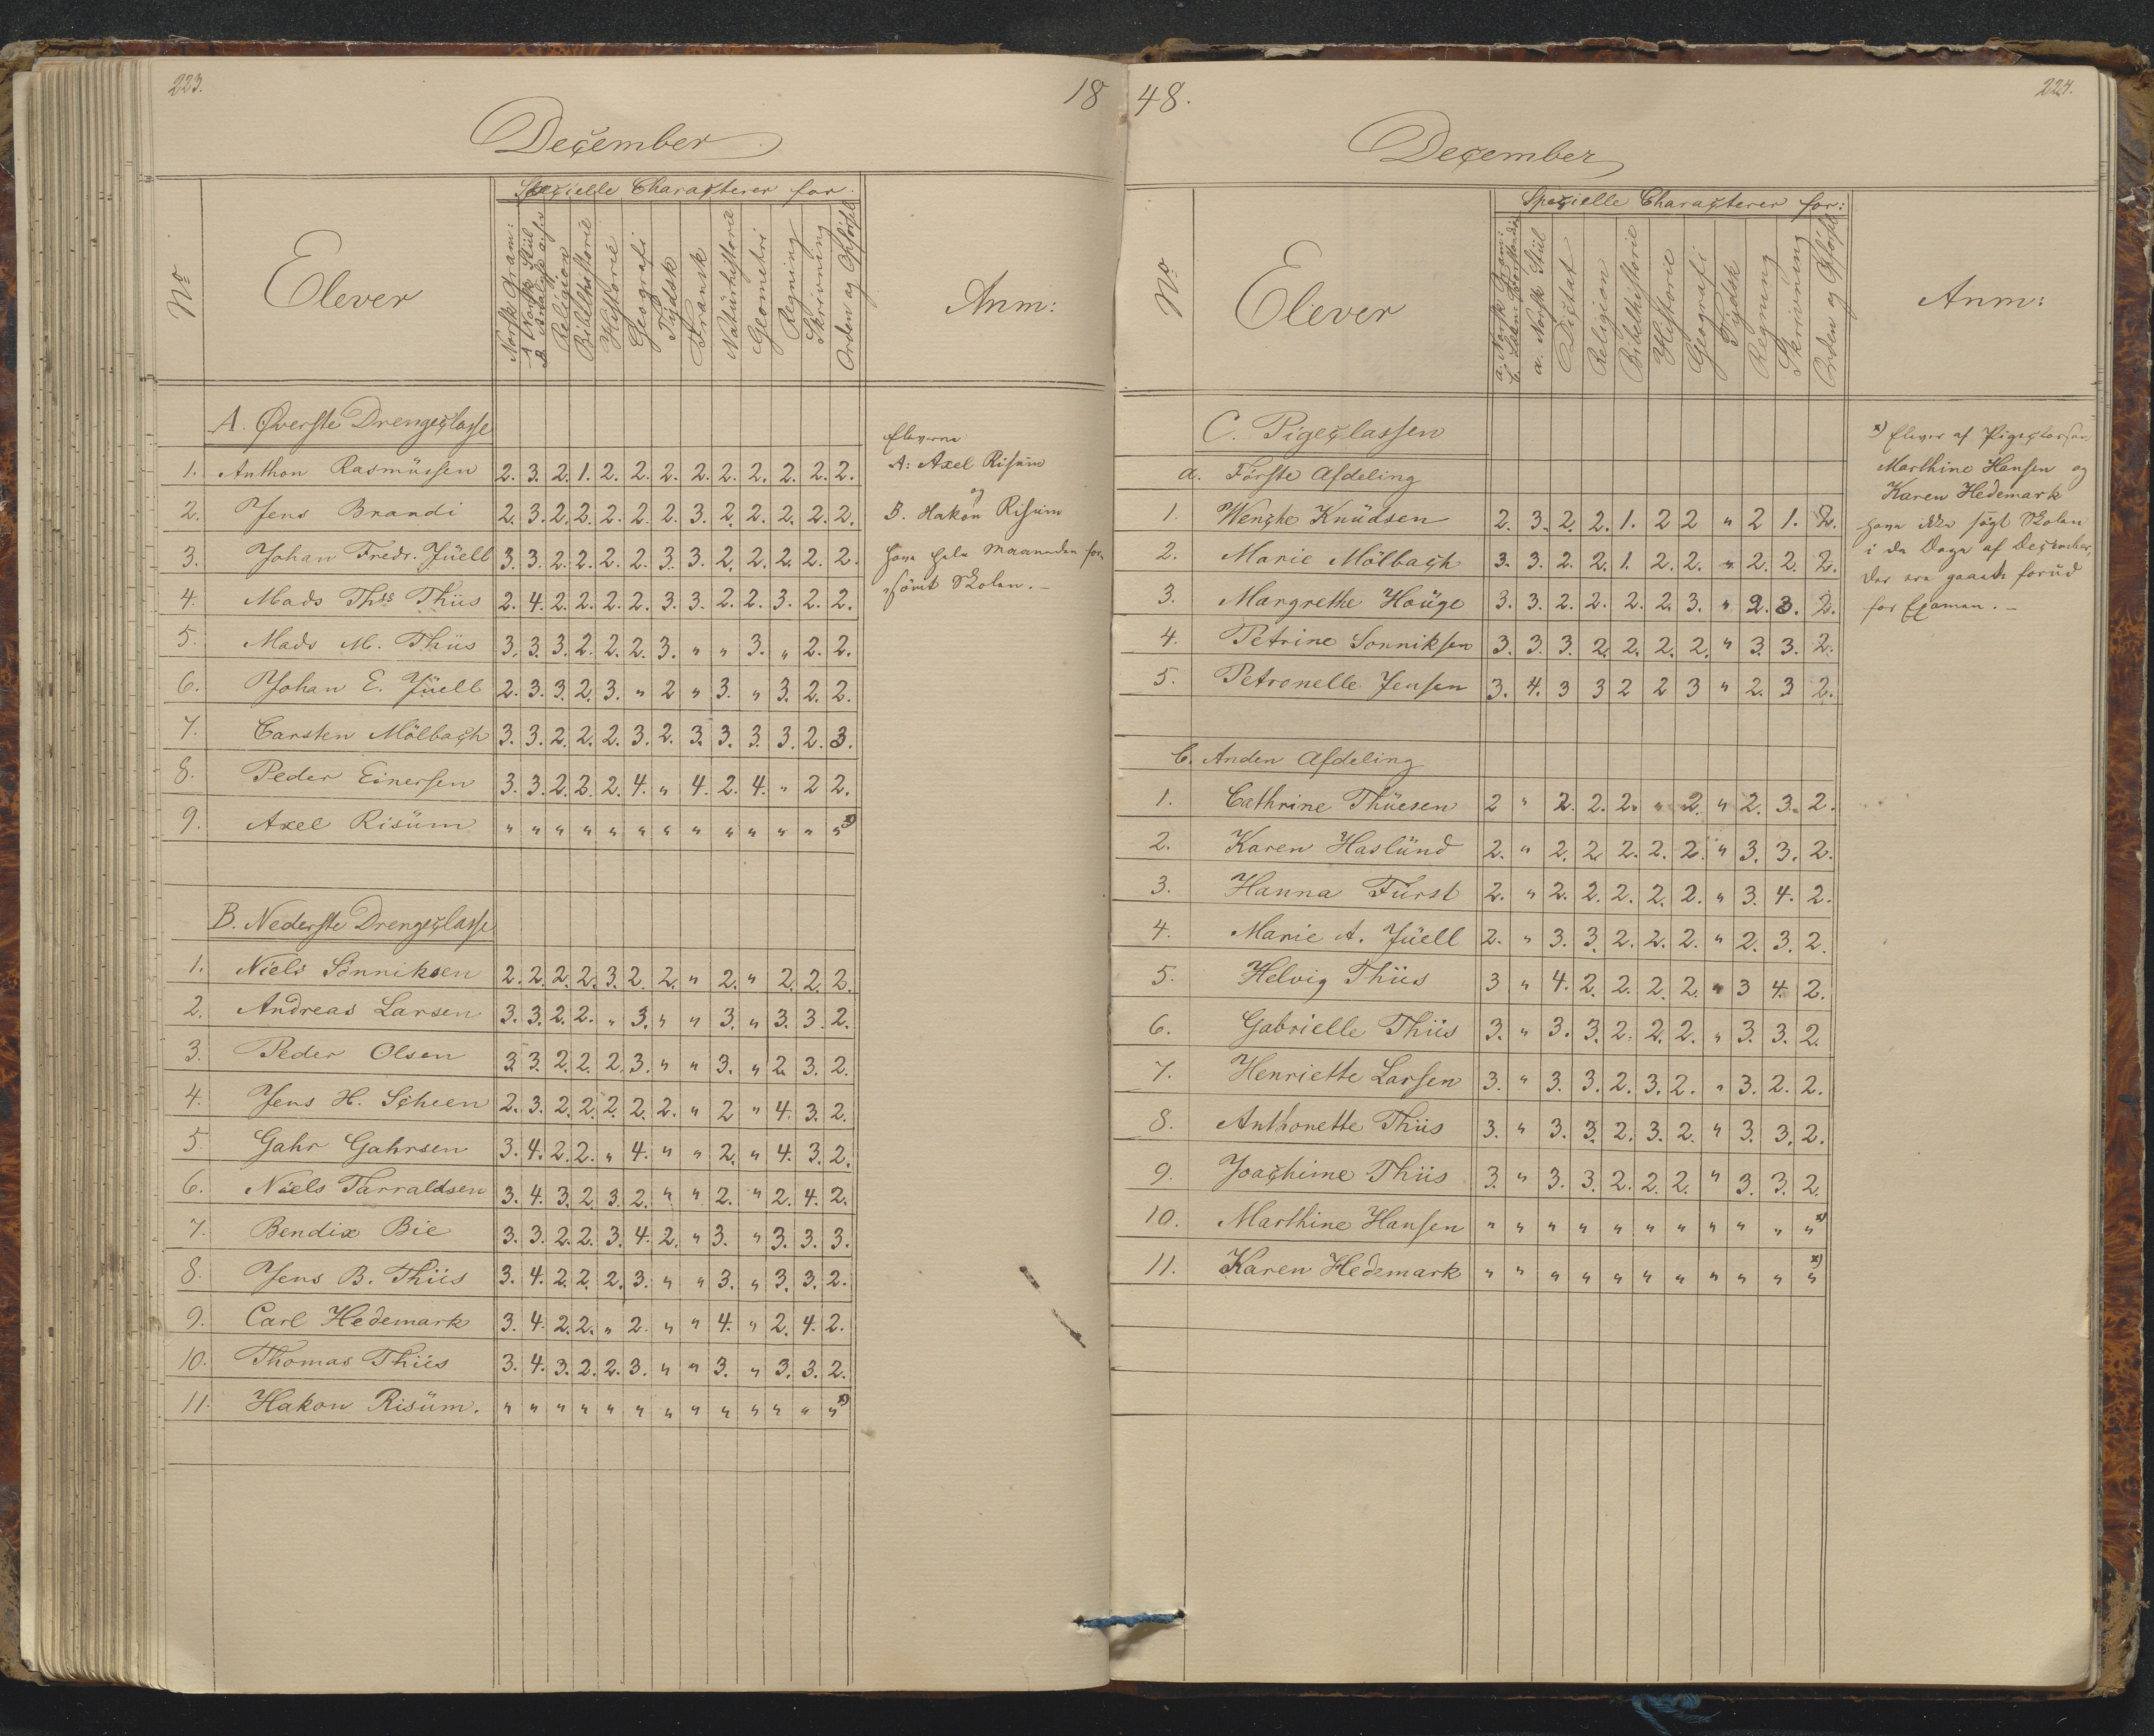 223.
18
December
Specielle Characterer for
No
Elever
Norsk Gram:
A Norsk Stiil
B Analyse
Religion
Bibelhistorie
Historie
Geografi
Tydsk
Fransk
Naturhistorie
Geometri
Regning
Skrivning
Orden og Opförsel
Anm:
A. Øverste Drengeclasse
1. Anthon Rasmüssen 2. 3. 2. 1. 2. 2. 2. 2. 2. 2. 2. 2. 2.
2. Jens Brandi 2. 3. 2. 2. 2. 2. 2. 3. 2. 2. 2. 2. 2.
3. Johan Fredr. Jüell 3. 3. 2. 2. 2. 2. 3. 3. 2. 2. 2. 2. 2.
4. Mads Thss Thiis 2. 4. 2. 2. 2. 2. 3. 3. 2. 2. 3. 2. 2.
5. Mads M. Thiis 3. 3. 3. 2. 2. 2. 3. " " 3. " 2. 2.
6. Johan E. Jüell 2. 3. 3. 2. 3. " 2 " 3. " 3. 2. 2.
7. Carsten Mölbach 3. 3. 2. 2. 2. 3. 2. 3. 3. 3. 3. 2. 3.
8. Peder Einersen 3. 3. 2. 2. 2. 4. " 4. 2. 4. " 2 2.
9. Axel Risüm " " " " " " " " " " " " " x)
B. Nederste Drengeclasse
1. Niels Sönniksen 2. 2. 2. 2. 3. 2. 2. " 2. " 2. 2. 2.
2. Andreas Larsen 3. 3. 2. 2. " 3. " " 3. " 3. 3. 2.
3. Peder Olsen 3. 3. 2. 2. 2. 3. " " 3. " 2. 3. 2.
4. Jens H. Scheen 2. 3. 2. 2. 2. 2. 2. " 2 " 4. 3. 2.
5. Gahr Gahrsen 3. 4. 2. 2. " 4. " " 2. " 4. 3. 2.
6. Niels Tarraldsen 3. 4. 3. 2. 3. 2. " " 2. " 2. 4. 2.
7. Bendix Bie 3. 3. 2. 2. 3. 4. 2. " 3. " 3. 3. 3.
8. Jens B. Thiis 3. 4. 2. 2. 2. 3. " " 3. " 3. 3. 2.
9. Carl Hedemark 3. 4. 2. 2. " 2. " " 4. " 2. 4. 2.
10. Thomas Thiis 3. 4. 3. 2. 2. 3. " " 3. " 3. 3. 2.
11. Hakon Risüm. " " " " " " " " " " " " " x)
Eleverne
A: Axel Risüm
og
B. Hakon Risüm
have hele Maaneden for
sömt Skolen. –
48.
224.
December
Specielle Characterer for:
No
Elever
a. Norsk Gram:
b. Læse Forstandig
a. Norsk Stiil
Dictat
Religion
Bibelhistorie
Historie
Geografi
Tydsk
Regning
Skrivning
Orden og Opförsel
Anm:
C. Pigeclassen
a. Förste Afdeling
1. Wenche Knüdsen 2. 3. 2. 2. 1. 2 2 " 2 1. 2.
2. Marie Mölbach 3. 3. 2. 2. 1 2. 2. " 2. 2. 2.
3. Margrethe Hoüge 3. 3. 2. 2. 2. 2. 3. " 2. 3. 2.
4. Petrine Sonniksen 3. 3. 3. 2. 2. 2. 2. " 3. 3. 2.
5. Petronelle Jensen 3. 4. 3 3 2 2 3 " 2. 3 2.
b. Anden Afdeling
1. Cathrine Thüesen 2 " 2. 2. 2. " 2. " 2. 3. 2.
2. Karen Haslünd 2. " 2. 2. 2. 2. 2. " 3. 3. 2.
3. Hanna Fürst 2. " 2. 2. 2. 2. 2. " 3. 4. 2.
4. Marie A. Jüell 2. " 3. 3. 2. 2. 2. " 2. 3. 2.
5. Helvig Thiis 3 " 4. 2. 2. 2. 2. " 3 4. 2.
6. Gabrielle Thiis 3. " 3. 3. 2. 2. 2. " 3. 3. 2.
7. Henriette Larsen 3. " 3. 3. 2. 3. 2. " 3. 2. 2.
8. Anthonette Thiis 3. " 3. 3. 2. 3. 2. " 3. 3. 2.
9. Joachime Thiis 3. " 3. 3. 2. 2. 2. " 3. 3. 2.
10. Marthine Hansen " " " " " " " " " " " x)
11. Karen Hedemark " " " " " " " " " " " x)
x) Elever af Pigeclassen
Marthine Hansen og
Karen Hedemark
have ikke sögt Skolen
i de Dage af December,
der ere gaaede forüd
for Examen. –